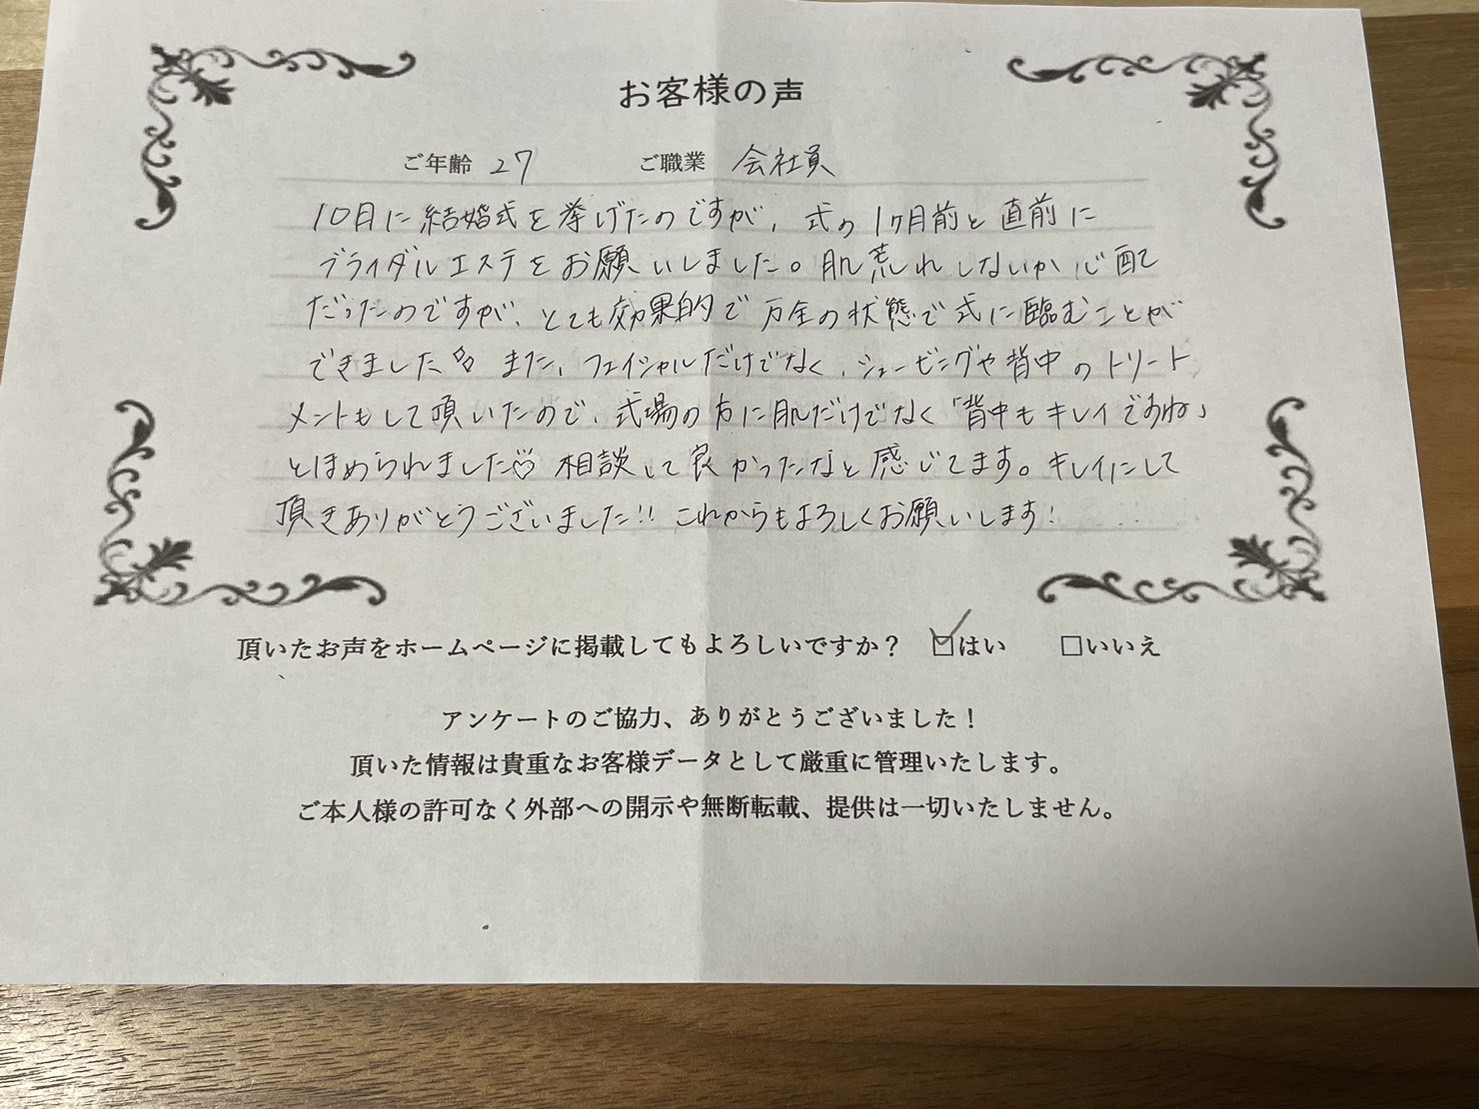 お客様の声
ご年齢 27 ご職業 会社員
10月に結婚式を挙げたのですが、式の1ヶ月前と直前に
ブライダルエステをお願いしました。肌荒れしないか心配
だったのですが、とても効果的で万全の状態で式に臨むことが
できました✨ また、フェイシャルだけでなく、シェービングや背中のトリート
メントもして頂いたので、式場の方に肌だけでなく「背中もキレイですね」
とほめられました♡ 相談して良かったなと感じてます。キレイにして
頂きありがとうございました!! これからもよろしくお願いします!
頂いたお声をホームページに掲載してもよろしいですか? ☑はい □いいえ
アンケートのご協力、ありがとうございました!
頂いた情報は貴重なお客様データとして厳重に管理いたします。
ご本人様の許可なく外部への開示や無断転載、提供は一切いたしません。